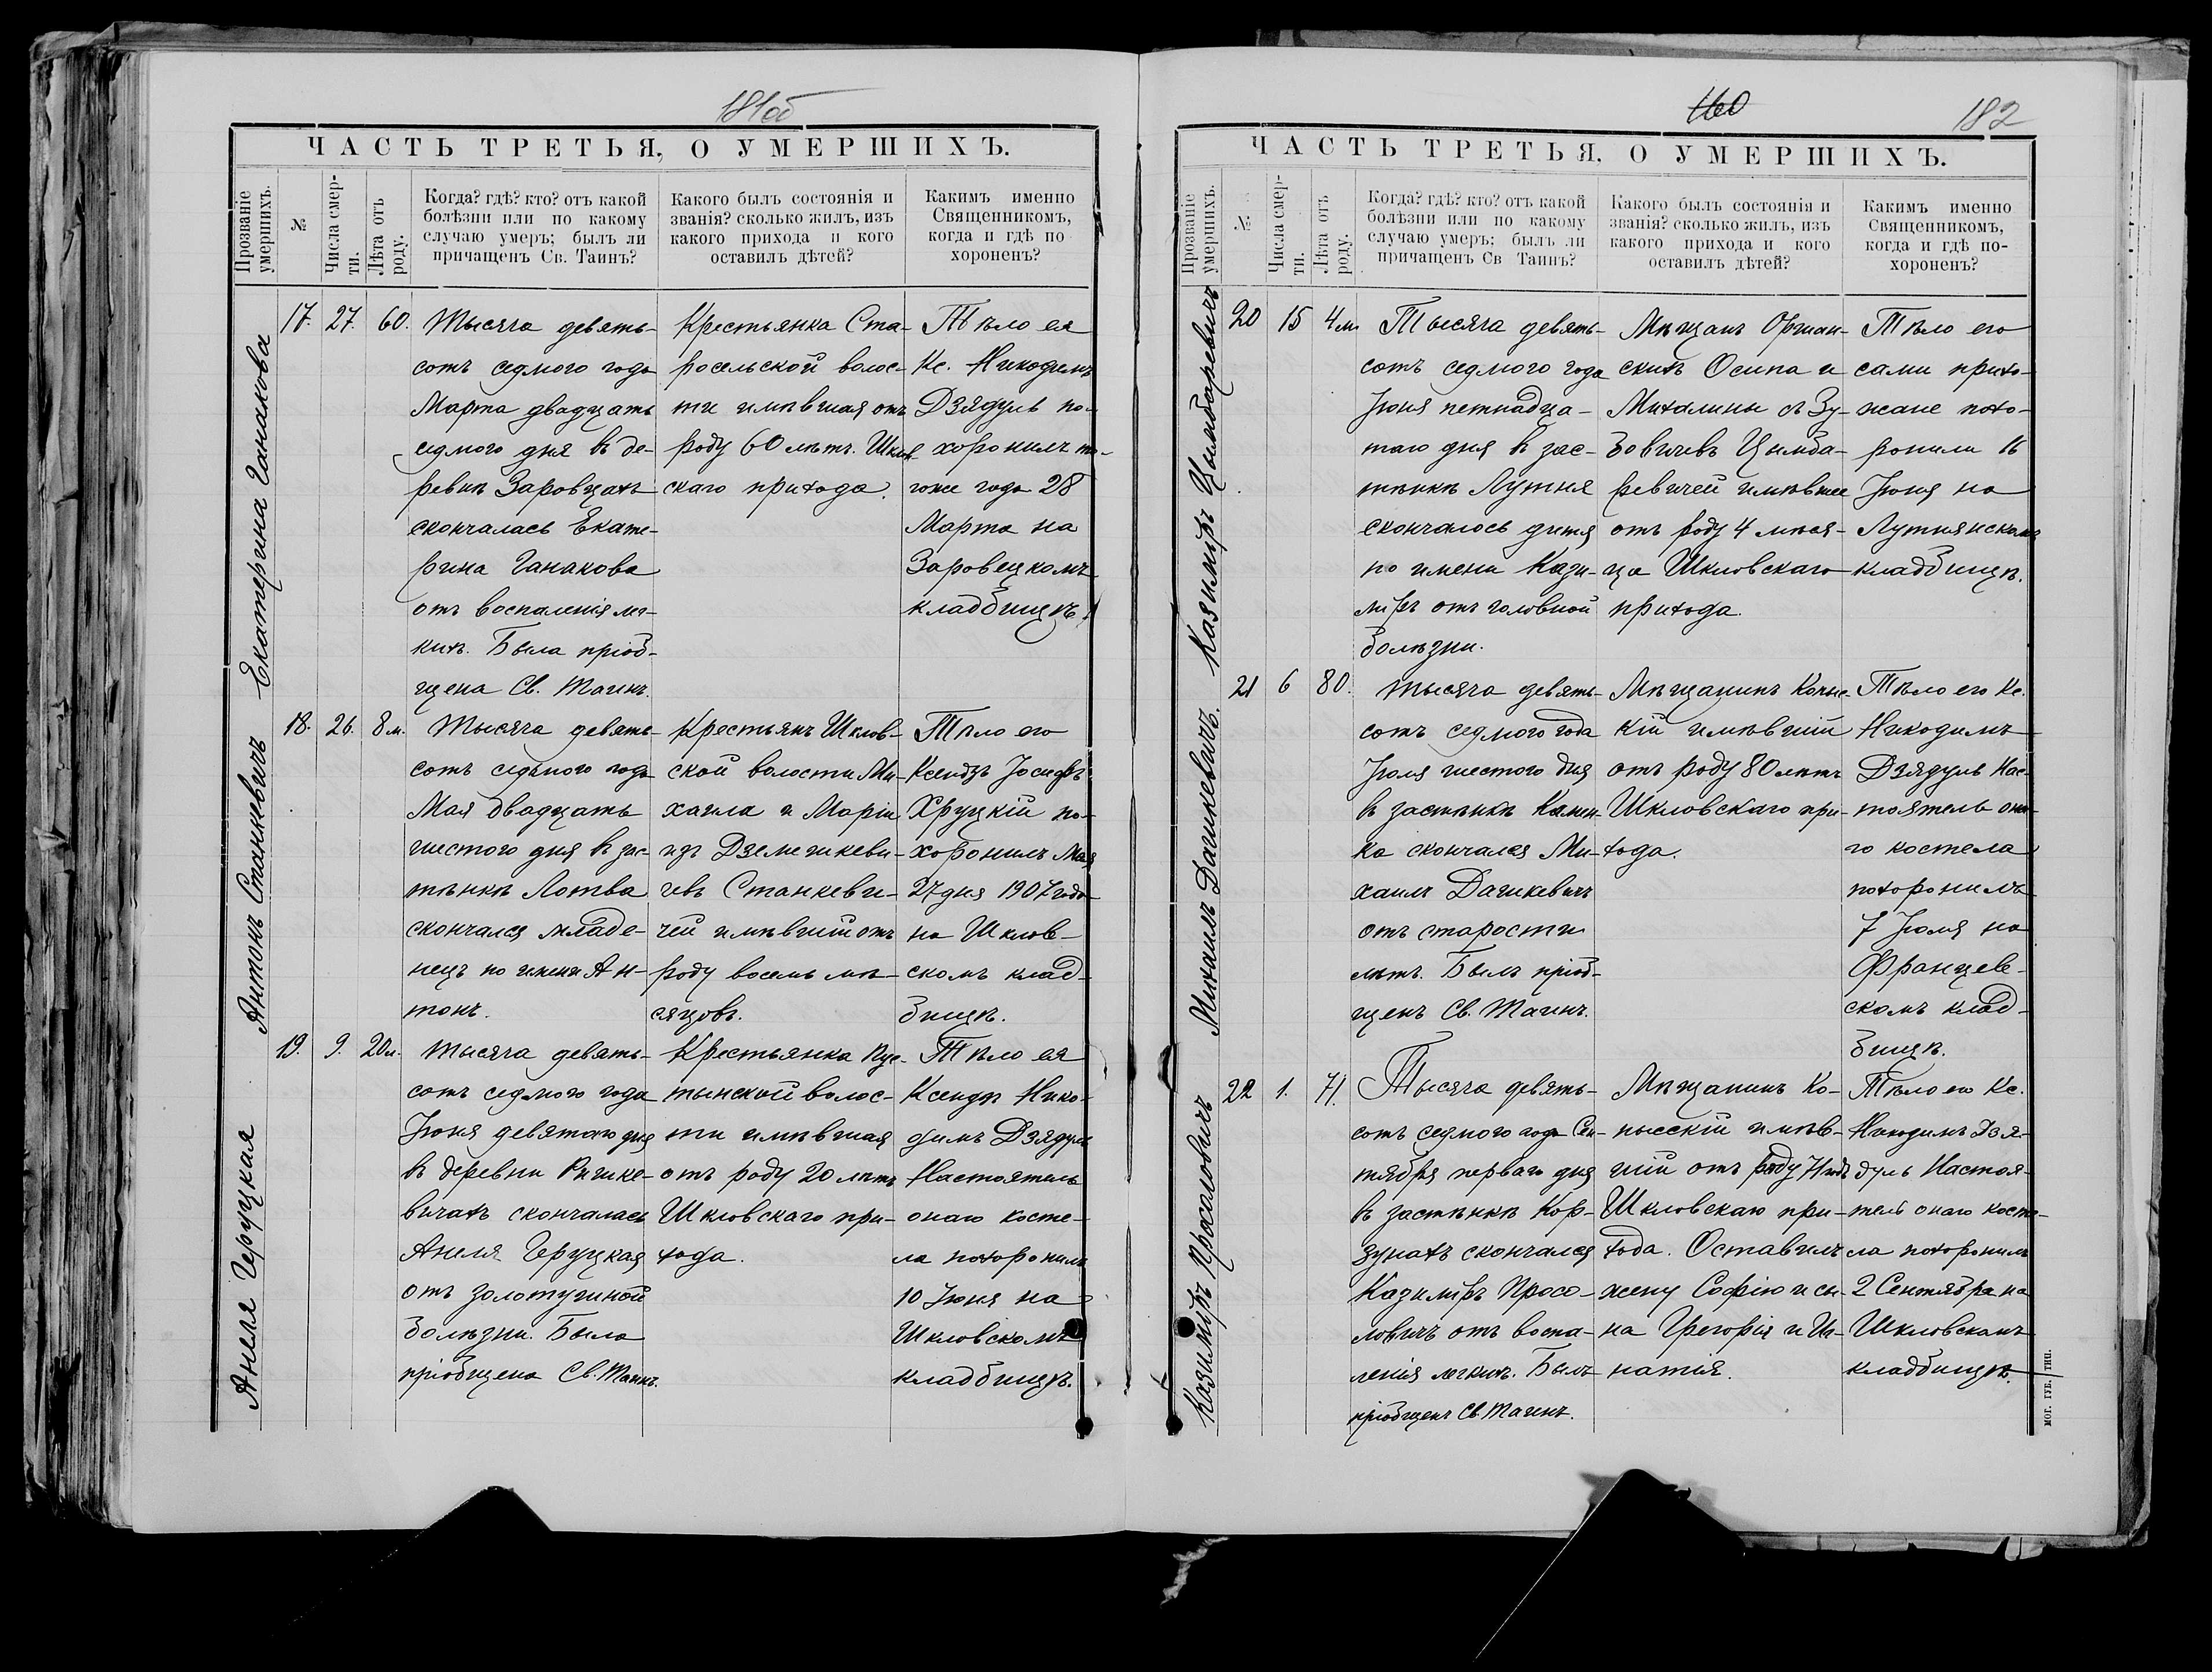 181об
ЧАСТЬ ТРЕТЬЯ, О УМЕРШИХЪ.
Прозваніе умершихъ.
№
Числа смер-
ти.
Лѣта отъ
роду.
Когда? гдѣ? кто? отъ какой
болѣзни или по какому
случаю умеръ; былъ ли
причащенъ Св. Таинъ?
Какого былъ состоянія и
званія? сколько жилъ, изъ
какого прихода и кого
оставилъ дѣтей?
Каким именно
Священникомъ,
когда и гдѣ по
хороненъ?
Екатерина Ганакова
17. 27. 60.
Тысяча девять-
сотъ седмого года
Марта двадцать
седмого дня въ де-
ревнѣ Заровцахъ
скончалась Екате-
рина Ганакова
отъ воспаленія лег-
кихъ. Была пріоб-
щена Св. Таинъ.
Крестьянка Ста-
росельской волос-
ти имѣвшая отъ
роду 60 лѣтъ. Шклов-
скаго прихода.
Тѣло ея
Кс. Никодимъ
Дзядуль по-
хоронилъ то-
гоже года 28
Марта на
Заровецкомъ
кладбищѣ.
Антонъ Станкевичъ
18. 26. 8 м.
Тысяча девять-
сотъ седьмого года
Мая двадцать
шестого дня въ зас-
тѣнкѣ Лотва
скончался младе-
нецъ по имени Ан-
тонъ.
Крестьянъ Шклов-
ской волости Ми-
хаила и Маріи
изъ Дземешкеви-
чевъ Станкеви-
чей имѣвшій отъ
роду восемь мѣ-
сяцовъ.
Тѣло его
Ксендзъ Іосифъ
Хруцкій по-
хоронилъ Мая
27 дня 1907 года
на Шклов-
скомъ клад-
бищѣ.
Анеля Геруцкая
19. 9. 20 л.
Тысяча девять-
сотъ седмого года
Іюня девятого дня
въ деревни Рыжке-
вичахъ скончалась
Анеля Геруцкая
отъ золотушной
болѣзни. Была
пріобщена Св. Таинъ.
Крестьянка Пус-
тынской волос-
ти имѣвшая
отъ роду 20 лѣтъ
Шкловскаго при-
хода.
Тѣло ея
Ксендзъ Нико-
димъ Дзядуль
Настоятель
онаго косте-
ла похоронилъ
10 Іюня на
Шкловскомъ
кладбищѣ.
160
182
ЧАСТЬ ТРЕТЬЯ, О УМЕРШИХЪ.
Прозваніе умершихъ.
№
Числа смер-
ти.
Лѣта отъ
роду.
Когда? гдѣ? кто? отъ какой
болѣзни или по какому
случаю умеръ; былъ ли
причащенъ Св Таинъ?
Какого былъ состоянія и
званія? сколько жилъ, изъ
какого прихода и кого
оставилъ дѣтей?
Какимъ именно
Священникомъ,
когда и гдѣ по-
хороненъ?
Казимиръ Цымбаревичъ
20 15 4 м.
Тысяча девять-
сотъ седмого года
Іюня петнадца-
таго дня въ зас-
тѣнкѣ Лутня
скончалось дитя
по имени Кази-
миръ отъ головной
болѣзни.
Мѣщанъ Оршан-
скихъ Осипа и
Михалины съ Зу-
бовичевъ Цымба-
ревичей имѣвшее
отъ роду 4 мѣся-
ца Шкловскаго
прихода.
Тѣло его
сами прихо-
жане похо-
ронили 16
Іюня на
Лутнянскомъ
кладбищѣ.
Михаилъ Дашкевичъ.
21 6 80.
Тысяча девять-
сотъ седмого года
Іюля шестого дня
въ застѣнкѣ Камен-
ка скончался Ми-
хаилъ Дашкевичъ
отъ старости
лѣтъ. Былъ пріоб-
щенъ Св. Таинъ.
Мѣщанинъ Копыс-
кій имѣвшій
отъ роду 80 лѣтъ
Шкловскаго при-
хода.
Тѣло его Кс.
Никодимъ
Дзядуль Нас-
тоятель она-
го костела
похоронилъ
7 Іюля на
Францев-
скомъ клад-
бищѣ.
Казимиръ Просоловичъ
22 1. 71.
Тысяча девять-
сотъ седмого года Сен-
тября перваго дня
въ застѣнкѣ Кор-
зунахъ скончался
Казимиръ Просо-
ловичъ отъ воспа-
ленія легкихъ. Былъ
пріобщенъ Св. Таинъ.
Мѣщанинъ Ко-
пысскій имѣв-
шій отъ роду 71 годъ
Шкловскаго при-
хода. Оставилъ
жену Софію и сы-
на Грегорія и Иг-
натія.
Тѣло его Кс.
Никодимъ Дзя-
дуль Настоя-
тель онаго косте-
ла похоронилъ
2 Сентября на
Шкловскомъ
кладбищѣ.
МОГ. ГУБ. ТИП.